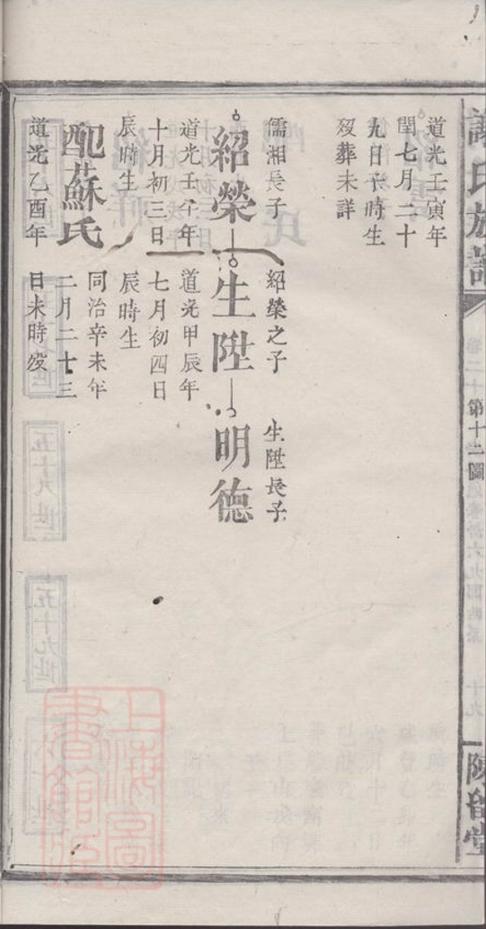 謝氏族譜
卷二十
第十二圖
十九
陳留堂
道光壬寅年
閏七月二十
九日 時生
歿葬未詳
儒湘長子
紹榮
道光壬午年
十月初三日
辰時生
配蘇氏
道光乙酉年
紹榮之子
生陞
道光甲辰年
七月初四日
辰時生
同治辛未年
二月二十三
日未時歿
生陞長子
明德
上海圖
書館藏